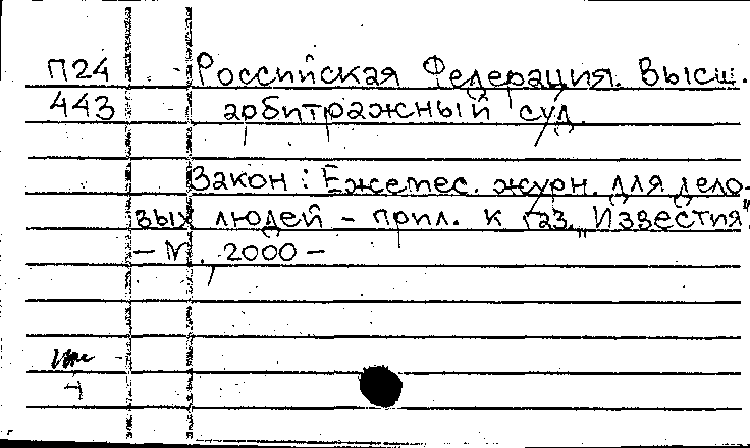 П24 Российская Федерация. Высш.
443 арбитражный суд.
Закон : Ежемес. журн. для дело-
вых людей - прил. к газ. „Известия"
- М., 2000 -